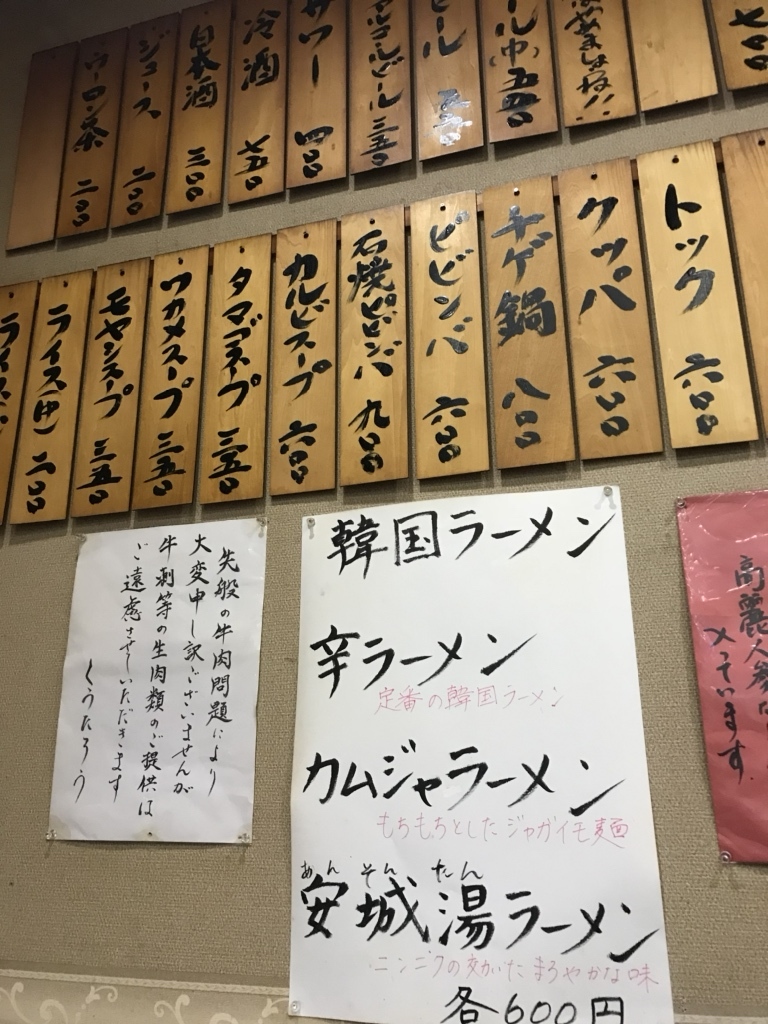 七〇〇
ール(中)五四〇
ール
サワー 四〇〇
冷酒 七五〇
日本酒 三〇〇
ジュース 二〇〇
ウーロン茶 二〇〇
トック 六〇〇
クッパ 六〇〇
チゲ鍋 八〇〇
ビビンバ 六〇〇
石焼ビビンバ 九〇〇
カルビスープ 六〇〇
タマゴスープ 三五〇
ワカメスープ 三五〇
モヤシスープ 三五〇
ライス(中) 二〇〇
ライス
先般の牛肉問題により
大変申し訳ございませんが
牛刺等の生肉類のご提供は
ご遠慮させていただきます
くうたろう
韓国ラーメン
辛ラーメン
定番の韓国ラーメン
カムジャラーメン
もちもちとしたジャガイモ麺
あんそんたん
安城湯ラーメン
ニンニクの効いたまろやかな味
各600円
高麗人参
入っています